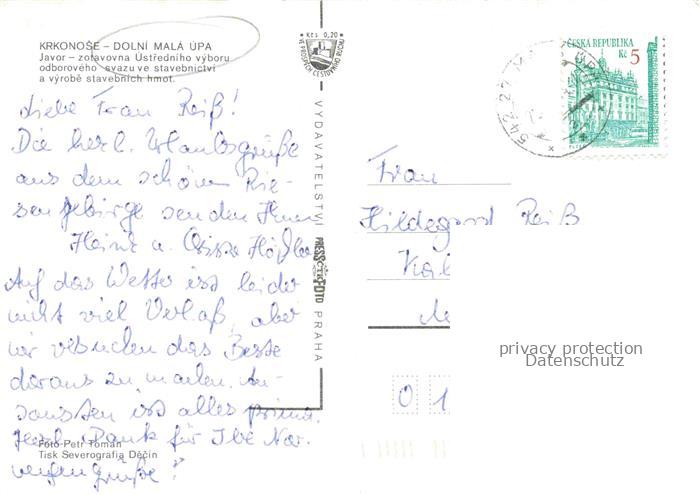 KRKONOŠE – DOLNÍ MALÁ ÚPA
Javor – zotavovna Ústředního výboru
odborového svazu ve stavebnictví
a výrobě stavebních hmot.
Liebe Frau Reiß!
Die herl. Urlaubsgrüße
aus dem schönen Rie-
sengebirge senden Ihnen
Heinz u.
Auf das Wetter ist leider
nicht viel Verlaß, aber
wir versuchen das Beste
daraus zu machen. An-
sonsten ist alles prima.
Herzl. Dank für Ihre Nor.
wegengrüße!
Foto Petr Toman
Tisk Severografia Děčín
Kčs 0,20
VE PROSPĚCH CESTOVNÍHO RUCHU
VYDAVATELSTVÍ PRESSFOTO PRAHA
ČESKÁ REPUBLIKA
Kč 5
542 27
Frau
Hildegard Reiß
0 1
privacy protection
Datenschutz